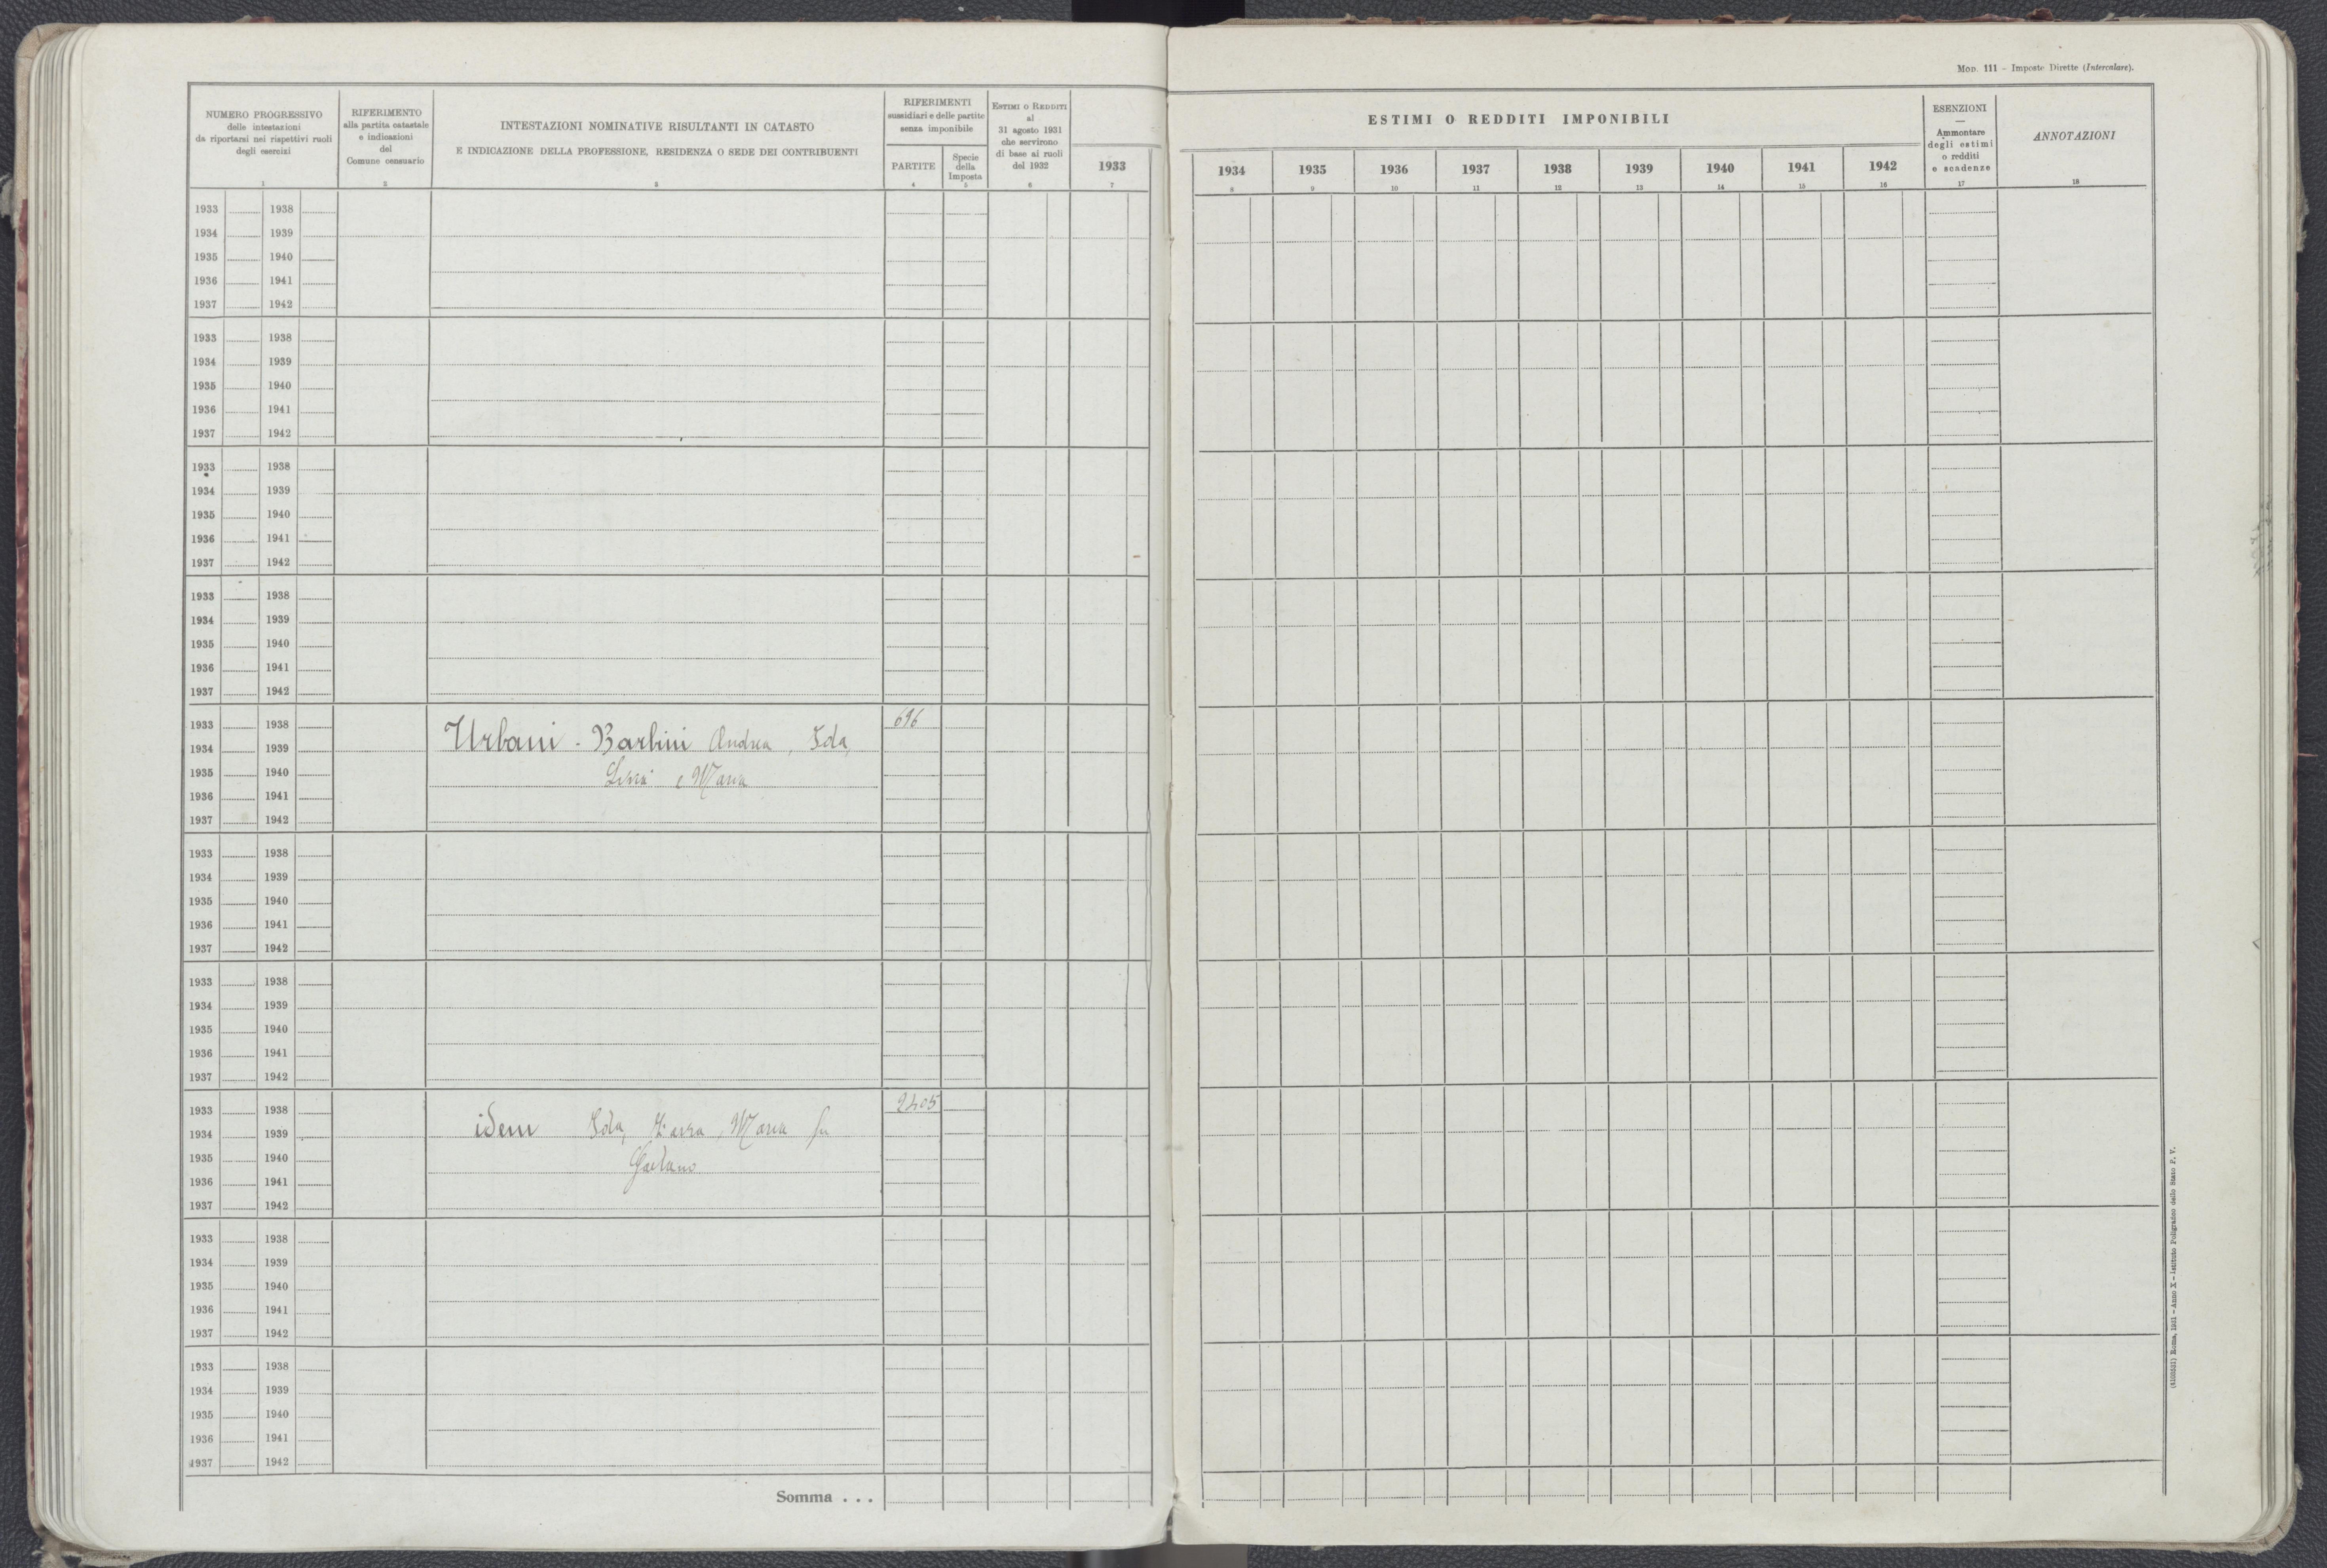 Mod. 111 – Imposte Dirette (Intercalare).
NUMERO PROGRESSIVO
delle intestazioni
da riportarsi nei rispettivi ruoli
degli esercizi
1
RIFERIMENTO
alla partita catastale
e indicazioni
del
Comune censuario
2
INTESTAZIONI NOMINATIVE RISULTANTI IN CATASTO
E INDICAZIONE DELLA PROFESSIONE, RESIDENZA O SEDE DEI CONTRIBUENTI
3
RIFERIMENTI
sussidiari e delle partite
senza imponibile
PARTITE
4
Specie
della
Imposta
5
ESTIMI O REDDITI
al
31 agosto 1931
che servirono
di base ai ruoli
del 1932
6
1933
7
ESTIMI O REDDITI IMPONIBILI
1934 1935 1936 1937 1938 1939 1940 1941 1942
8 9 10 11 12 13 14 15 16
ESENZIONI
—
Ammontare
degli estimi
o redditi
e scadenze
17
ANNOTAZIONI
18
1933 1938
1934 1939
1935 1940
1936 1941
1937 1942
1933 1938
1934 1939
1935 1940
1936 1941
1937 1942
1933 1938
1934 1939
1935 1940
1936 1941
1937 1942
1933 1938
1934 1939
1935 1940
1936 1941
1937 1942
1933 1938 696
1934 1939 Urbani - Barbini Andrea, Ida,
1935 1940 e Maria
1936 1941
1937 1942
1933 1938
1934 1939
1935 1940
1936 1941
1937 1942
1933 1938
1934 1939
1935 1940
1936 1941
1937 1942
1933 1938 2405
1934 1939 idem Ida, Maria fu
1935 1940 Gaetano
1936 1941
1937 1942
1933 1938
1934 1939
1935 1940
1936 1941
1937 1942
1933 1938
1934 1939
1935 1940
1936 1941
1937 1942
Somma . . .
Roma, 1931 – Anno X – Istituto Poligrafico dello Stato P. V.